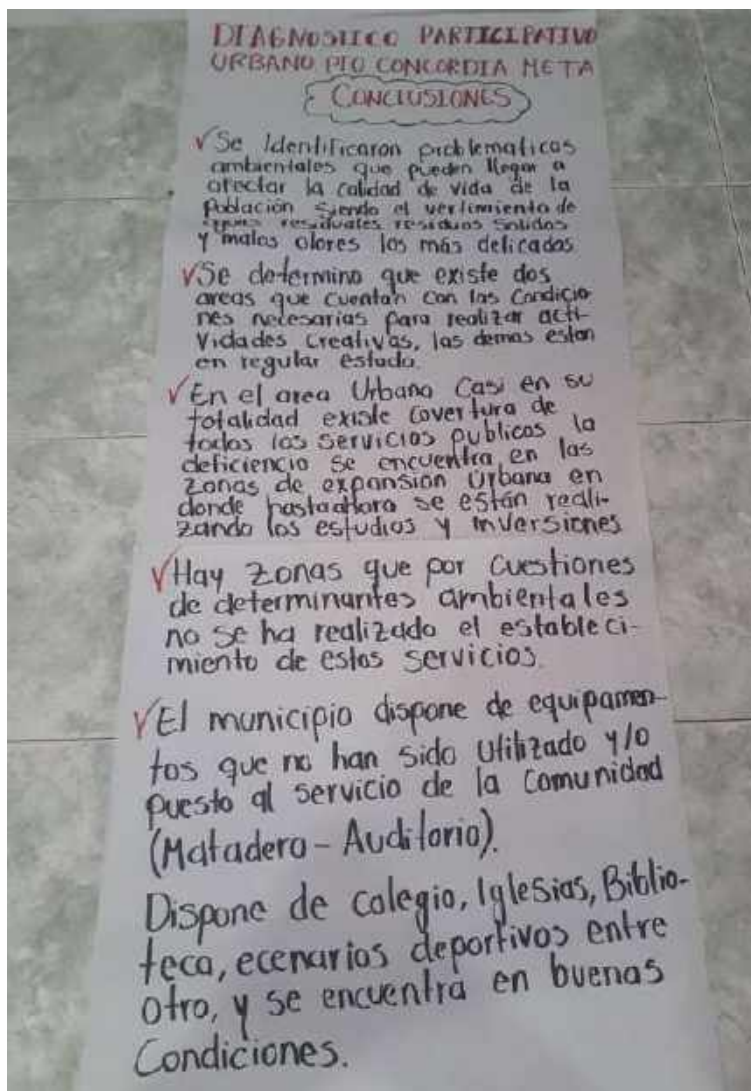 DIAGNOSTICO PARTICIPATIVO
URBANO PTO CONCORDIA META
CONCLUSIONES
√ Se Identificaron problematicas
ambientales que pueden llegar a
afectar la calidad de vida de la
Población siendo el vertimiento de
aguas residuales residuos solidos
y malos olores los más delicados
√ Se determino que existe dos
areas que cuentan con las Condicio-
nes necesarias para realizar acti-
vidades Creativas, las demas estan
en regular estado.
√ En el area Urbana Casi en su
totalidad existe covertura de
todos los servicios publicos la
deficiencia se encuentra en las
zonas de expansión Urbana en
donde hastaahora se están reali-
zando los estudios y inversiones
√ Hay zonas que por cuestiones
de determinantes ambientales
no se ha realizado el estableci-
miento de estos servicios.
√ El municipio dispone de equipamen-
tos que no han sido utilizado y/o
puesto al servicio de la comunidad
(Matadero - Auditorio).
Dispone de colegio, Iglesias, Biblio-
teca, ecenarios deportivos entre
otro, y se encuentra en buenas
Condiciones.